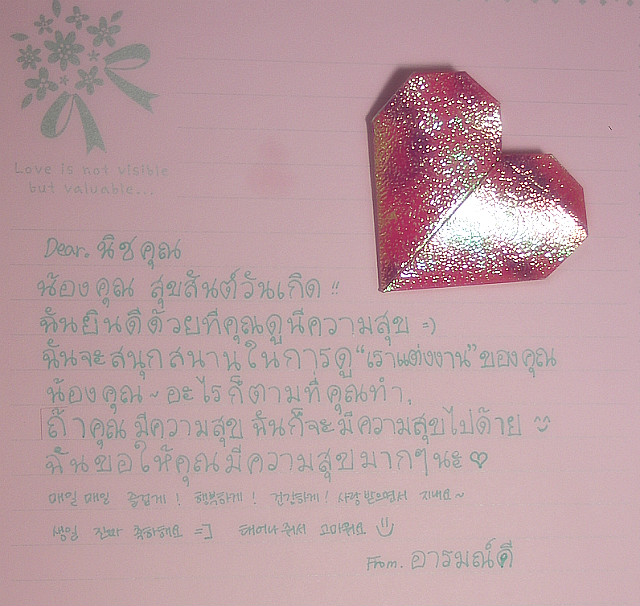 Love is not visible
but valuable...
Dear. นิชคุณ
น้องคุณ สุขสันต์วันเกิด !!
ฉันยินดีด้วยที่คุณดูมีความสุข =)
ฉันจะสนุกสนานในการดู "เราแต่งงาน" ของคุณ
น้องคุณ ~ อะไรก็ตามที่คุณทำ,
ถ้าคุณมีความสุข ฉันก็จะมีความสุขไปด้วย
ฉันขอให้คุณมีความสุขมากๆนะ ♡
매일매일 즐겁게! 행복하게! 건강하게! 사랑받으면서 지내요~
생일 진짜 축하해요 =] 태어나줘서 고마워요
From. อารมณ์ดี